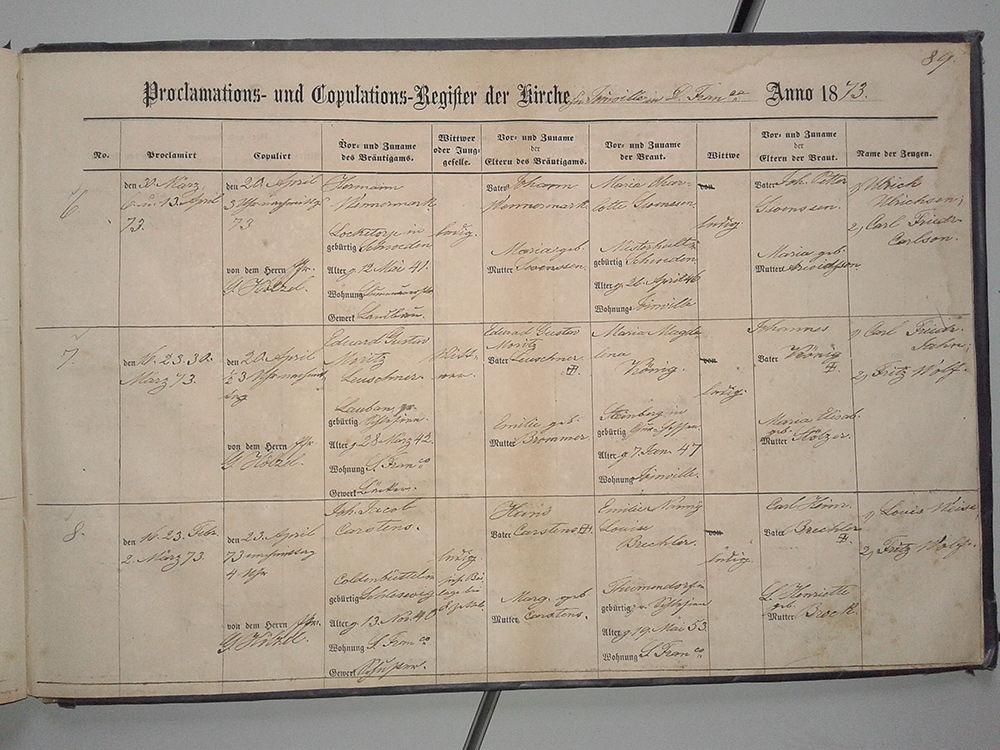 89.
Proclamations- und Copulations-Register der Kirche zu Joinville in D. Franca Anno 1873.
No.
Proclamirt
Copulirt
Vor- und Zuname des Bräutigams.
Wittwer oder Junggeselle.
Vor- und Zuname der Eltern des Bräutigams.
Vor- und Zuname der Braut.
Wittwe
Vor- und Zuname der Eltern der Braut.
Name der Zeugen.
6
den 30. März
6. u. 13. April
73.
den 20. April
3 Uhr nachmittg
73
von dem Herrn Pfr.
G. Hölzel.
Hermann
Wennermark
in
gebürtig Schweden
Alter g. 12 Mai 41.
Wohnung
Gewerk Landbau.
ledig.
Vater Johann
Wennermark
Maria geb.
Mutter Swensson.
Maria Char-
lotte Swensson.
gebürtig Schweden
Alter g. 26. April 46
Wohnung Joinville
von
ledig
Vater Joh. Peter
Swenssen.
Maria geb.
Mutter Arvidsson
1) Ulrich
Ulrichsen;
2) Carl Friedr.
Carlson.
7
den 16. 23. 30.
März 73.
den 20. April
½ 3 Uhr nachmit-
tag
von dem Herrn Pfr
G. Hölzel.
Eduard Gustav
Moritz
Leuschner
Lauban
gebürtig Schlesien
Alter g. 28 März 42.
Wohnung S. Franco
Gewerk Bäcker.
Witt-
wer
Eduard Gustav
Moritz
Vater Leuschner
Emilie geb.
Mutter Brommer
Maria Magda-
lena
König.
Steinberg in
gebürtig
Alter g. 7 Jan. 47
Wohnung Joinville.
von
ledig.
Johannes
Vater König
Maria Elisab.
geb.
Mutter Stölzer.
1) Carl Friedr.
Jahn;
2) Fritz Wolf.
8.
den 16. 23. Febr.
2. März 73.
den 23. April
73 nachmittag
4 Uhr
von dem Herrn Pfr.
G. Hölzel.
Joh. Jacob
Carstens.
Coldenbüttel in
gebürtig Schleswig
Alter g. 13. Nov. 40
Wohnung S. Franco
Gewerk Schuster.
ledig.
Hans
Vater Carstens
Marg. geb
Mutter Carstens.
Emilie Nanny
Louise
Brechler.
Thumendorf
gebürtig in Schlesien
Alter g. 19. Mai 53.
Wohnung S. Franco
von
ledig.
Carl Heinr.
Vater Brechler
L. Henriette
geb.
Mutter Brock.
1) Louis Weise
2) Fritz Wolf.